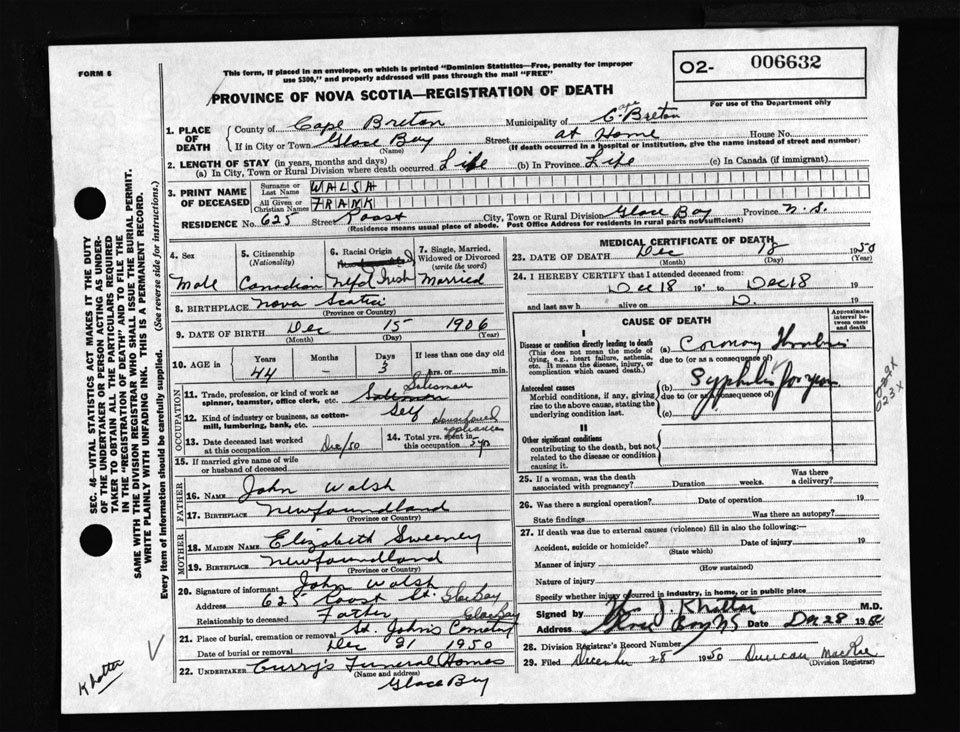 FORM 6
This form, if placed in an envelope, on which is printed "Dominion Statistics—Free, penalty for improper
use $300," and properly addressed will pass through the mail "FREE"
O2- 006632
For use of the Department only
PROVINCE OF NOVA SCOTIA—REGISTRATION OF DEATH
1. PLACE OF DEATH
County of Cape Breton Municipality of Cape Breton
If in City or Town Glace Bay Street at Home House No.
(Name) (If death occurred in a hospital or institution, give the name instead of street and number)
2. LENGTH OF STAY (in years, months and days)
(a) In City, Town or Rural Division where death occurred Life (b) In Province Life (c) In Canada (if immigrant)
3. PRINT NAME OF DECEASED
Surname or Last Name WALSH
All Given or Christian Names FRANK
RESIDENCE No. 625 Street Roost City, Town or Rural Division Glace Bay Province N.S.
(Residence means usual place of abode. Post Office Address for residents in rural parts not sufficient)
4. Sex Male
5. Citizenship (Nationality) Canadian
6. Racial Origin Nfld Irish
7. Single, Married, Widowed or Divorced (write the word) Married
8. BIRTHPLACE Nova Scotia
(Province or Country)
9. DATE OF BIRTH Dec 15 1906
(Month) (Day) (Year)
10. AGE in Years Months Days If less than one day old
44 – 3 hrs. or min.
OCCUPATION
11. Trade, profession, or kind of work as spinner, teamster, office clerk, etc. Salesman Salesman
12. Kind of industry or business, as cotton-mill, lumbering, bank, etc. Self Household appliances
13. Date deceased last worked at this occupation Dec/50
14. Total yrs. spent in this occupation 5 yrs
15. If married give name of wife or husband of deceased
FATHER
16. NAME John Walsh
17. BIRTHPLACE Newfoundland
(Province or Country)
MOTHER
18. MAIDEN NAME Elizabeth Sweeney
19. BIRTHPLACE Newfoundland
(Province or Country)
20. Signature of informant John Walsh
Address 625 Roost St. Glace Bay
Relationship to deceased Father
21. Place of burial, cremation or removal St. John's Cemetery Glace Bay
Date of burial or removal Dec 21 1950
22. UNDERTAKER Curry's Funeral Homes
(Name and address)
Glace Bay
MEDICAL CERTIFICATE OF DEATH
23. DATE OF DEATH Dec 18 1950
(Month) (Day) (Year)
24. I HEREBY CERTIFY that I attended deceased from:
Dec 18 19 to Dec 18 19
and last saw h alive on D. 19
CAUSE OF DEATH
Approximate interval between onset and death
I
Disease or condition directly leading to death (a) Coronary Thrombosis
(This does not mean the mode of dying, e.g., heart failure, asthenia, etc. It means the disease, injury, or complication which caused death.)
due to (or as a consequence of)
Antecedent causes (b) Syphilis for years
Morbid conditions, if any, giving rise to the above cause, stating the underlying condition last.
due to (or as a consequence of)
(c)
II
Other significant conditions
contributing to the death, but not related to the disease or condition causing it.
023X
25. If a woman, was the death associated with pregnancy? Duration weeks. Was there a delivery?
26. Was there a surgical operation? Date of operation 19
State findings Was there an autopsy?
27. If death was due to external causes (violence) fill in also the following:—
Accident, suicide or homicide? Date of injury 19
(State which)
Manner of injury
(How sustained)
Nature of injury
Specify whether injury occurred in industry, in home, or in public place
Signed by J Khattar M.D.
Address Glace Bay NS Date Dec 28 1950
28. Division Registrar's Record Number
29. Filed December 28 1950 Duncan MacRae
(Division Registrar)
SEC. 46—VITAL STATISTICS ACT MAKES IT THE DUTY
OF THE UNDERTAKER OR PERSON ACTING AS UNDER-
TAKER TO OBTAIN ALL THE PARTICULARS REQUIRED
IN THE "REGISTRATION OF DEATH" AND TO FILE THE
SAME WITH THE DIVISION REGISTRAR WHO SHALL ISSUE THE BURIAL PERMIT.
WRITE PLAINLY WITH UNFADING INK. THIS IS A PERMANENT RECORD.
Every item of information should be carefully supplied. (See reverse side for instructions.)
Khatter